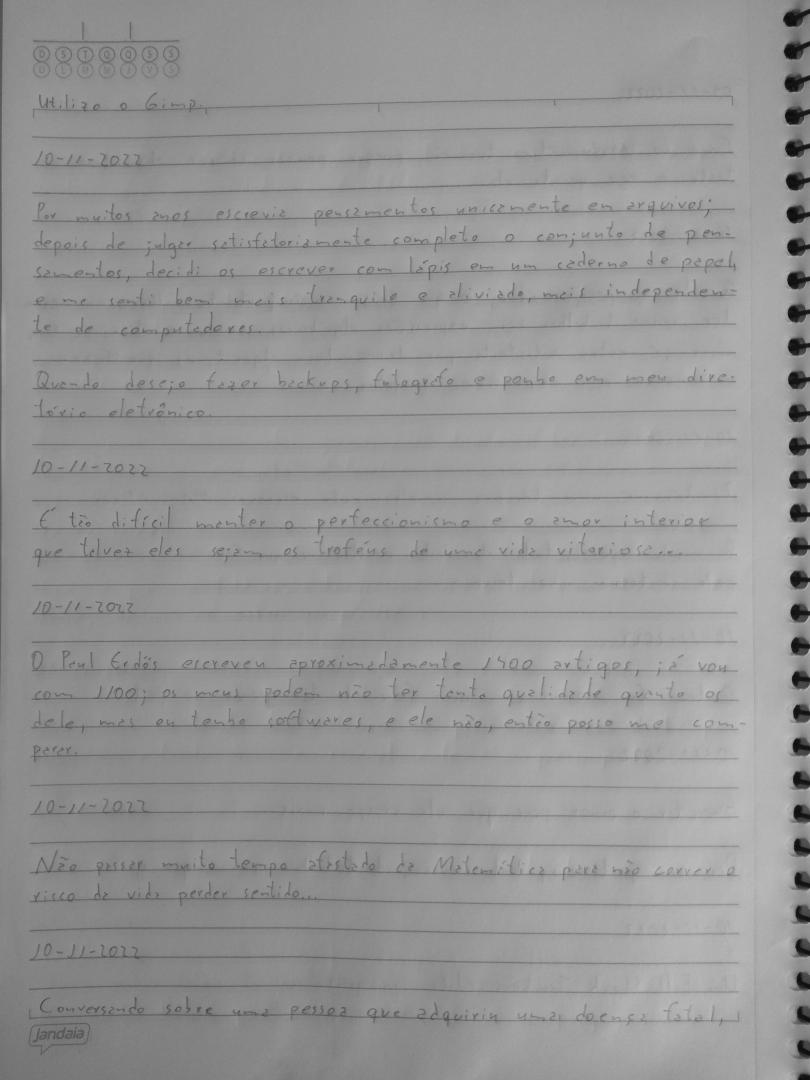 D S T Q Q S S
D L M M J V S
Utilizo o Gimp.
10-11-2022
Por muitos anos escrevia pensamentos unicamente em arquivos;
depois de julgar satisfatoriamente completo o conjunto de pen-
samentos, decidi os escrever com lápis em um caderno de papel,
e me senti bem mais tranquilo e aliviado, mais independen-
te de computadores.
Quando desejo fazer backups, fotografo e ponho em meu dire-
tório eletrônico.
10-11-2022
É tão difícil manter o perfeccionismo e o amor interior
que talvez eles sejam os troféus de uma vida vitoriosa...
10-11-2022
O Paul Erdös escreveu aproximadamente 1400 artigos, já vou
com 1100; os meus podem não ter tanta qualidade quanto os
dele, mas eu tenho softwares, e ele não, então posso me com-
parar.
10-11-2022
Não passar muito tempo afastado da Matemática para não correr o
risco da vida perder sentido...
10-11-2022
Conversando sobre uma pessoa que adquiriu uma doença fatal,
Jandaia